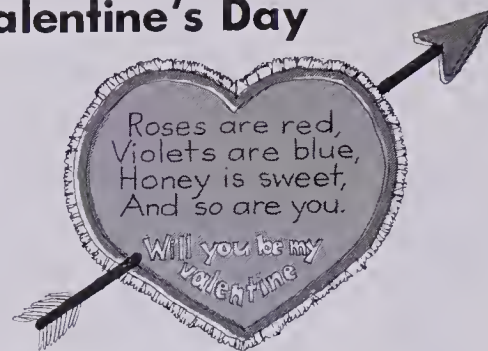 alentine's Day
Roses are red,
Violets are blue,
Honey is sweet,
And so are you.
Will you be my
valentine